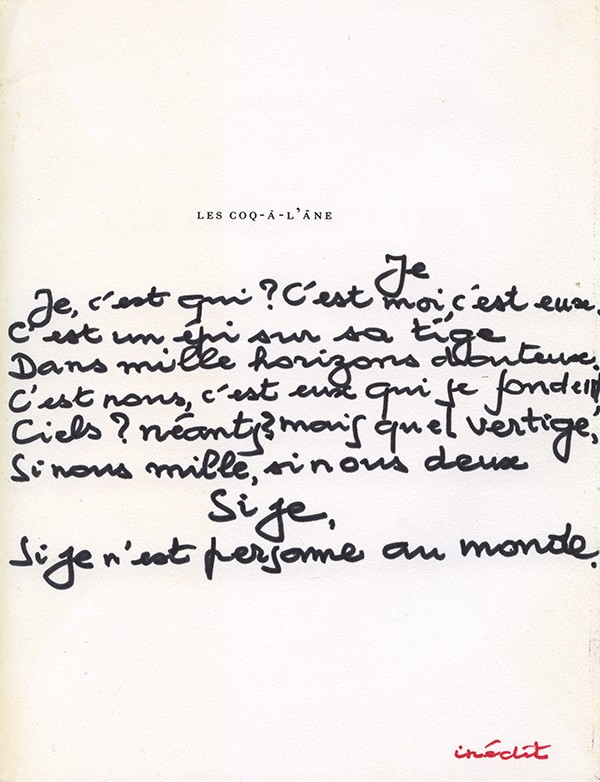 LES COQ-À-L'ÂNE
Je
Je, c'est qui ? C'est moi, c'est eux.
C'est un épi sur sa tige
Dans mille horizons douteux.
C'est nous, c'est eux qui se fondent
Ciels ? néants ? mais quel vertige,
Si nous mille, si nous deux
Si je,
Si je n'est personne au monde.
inédit